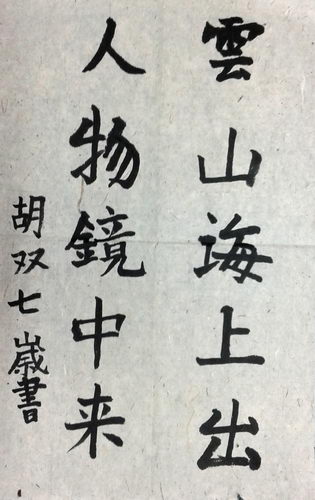 雲山海上出
人物鏡中来
胡双七歲書